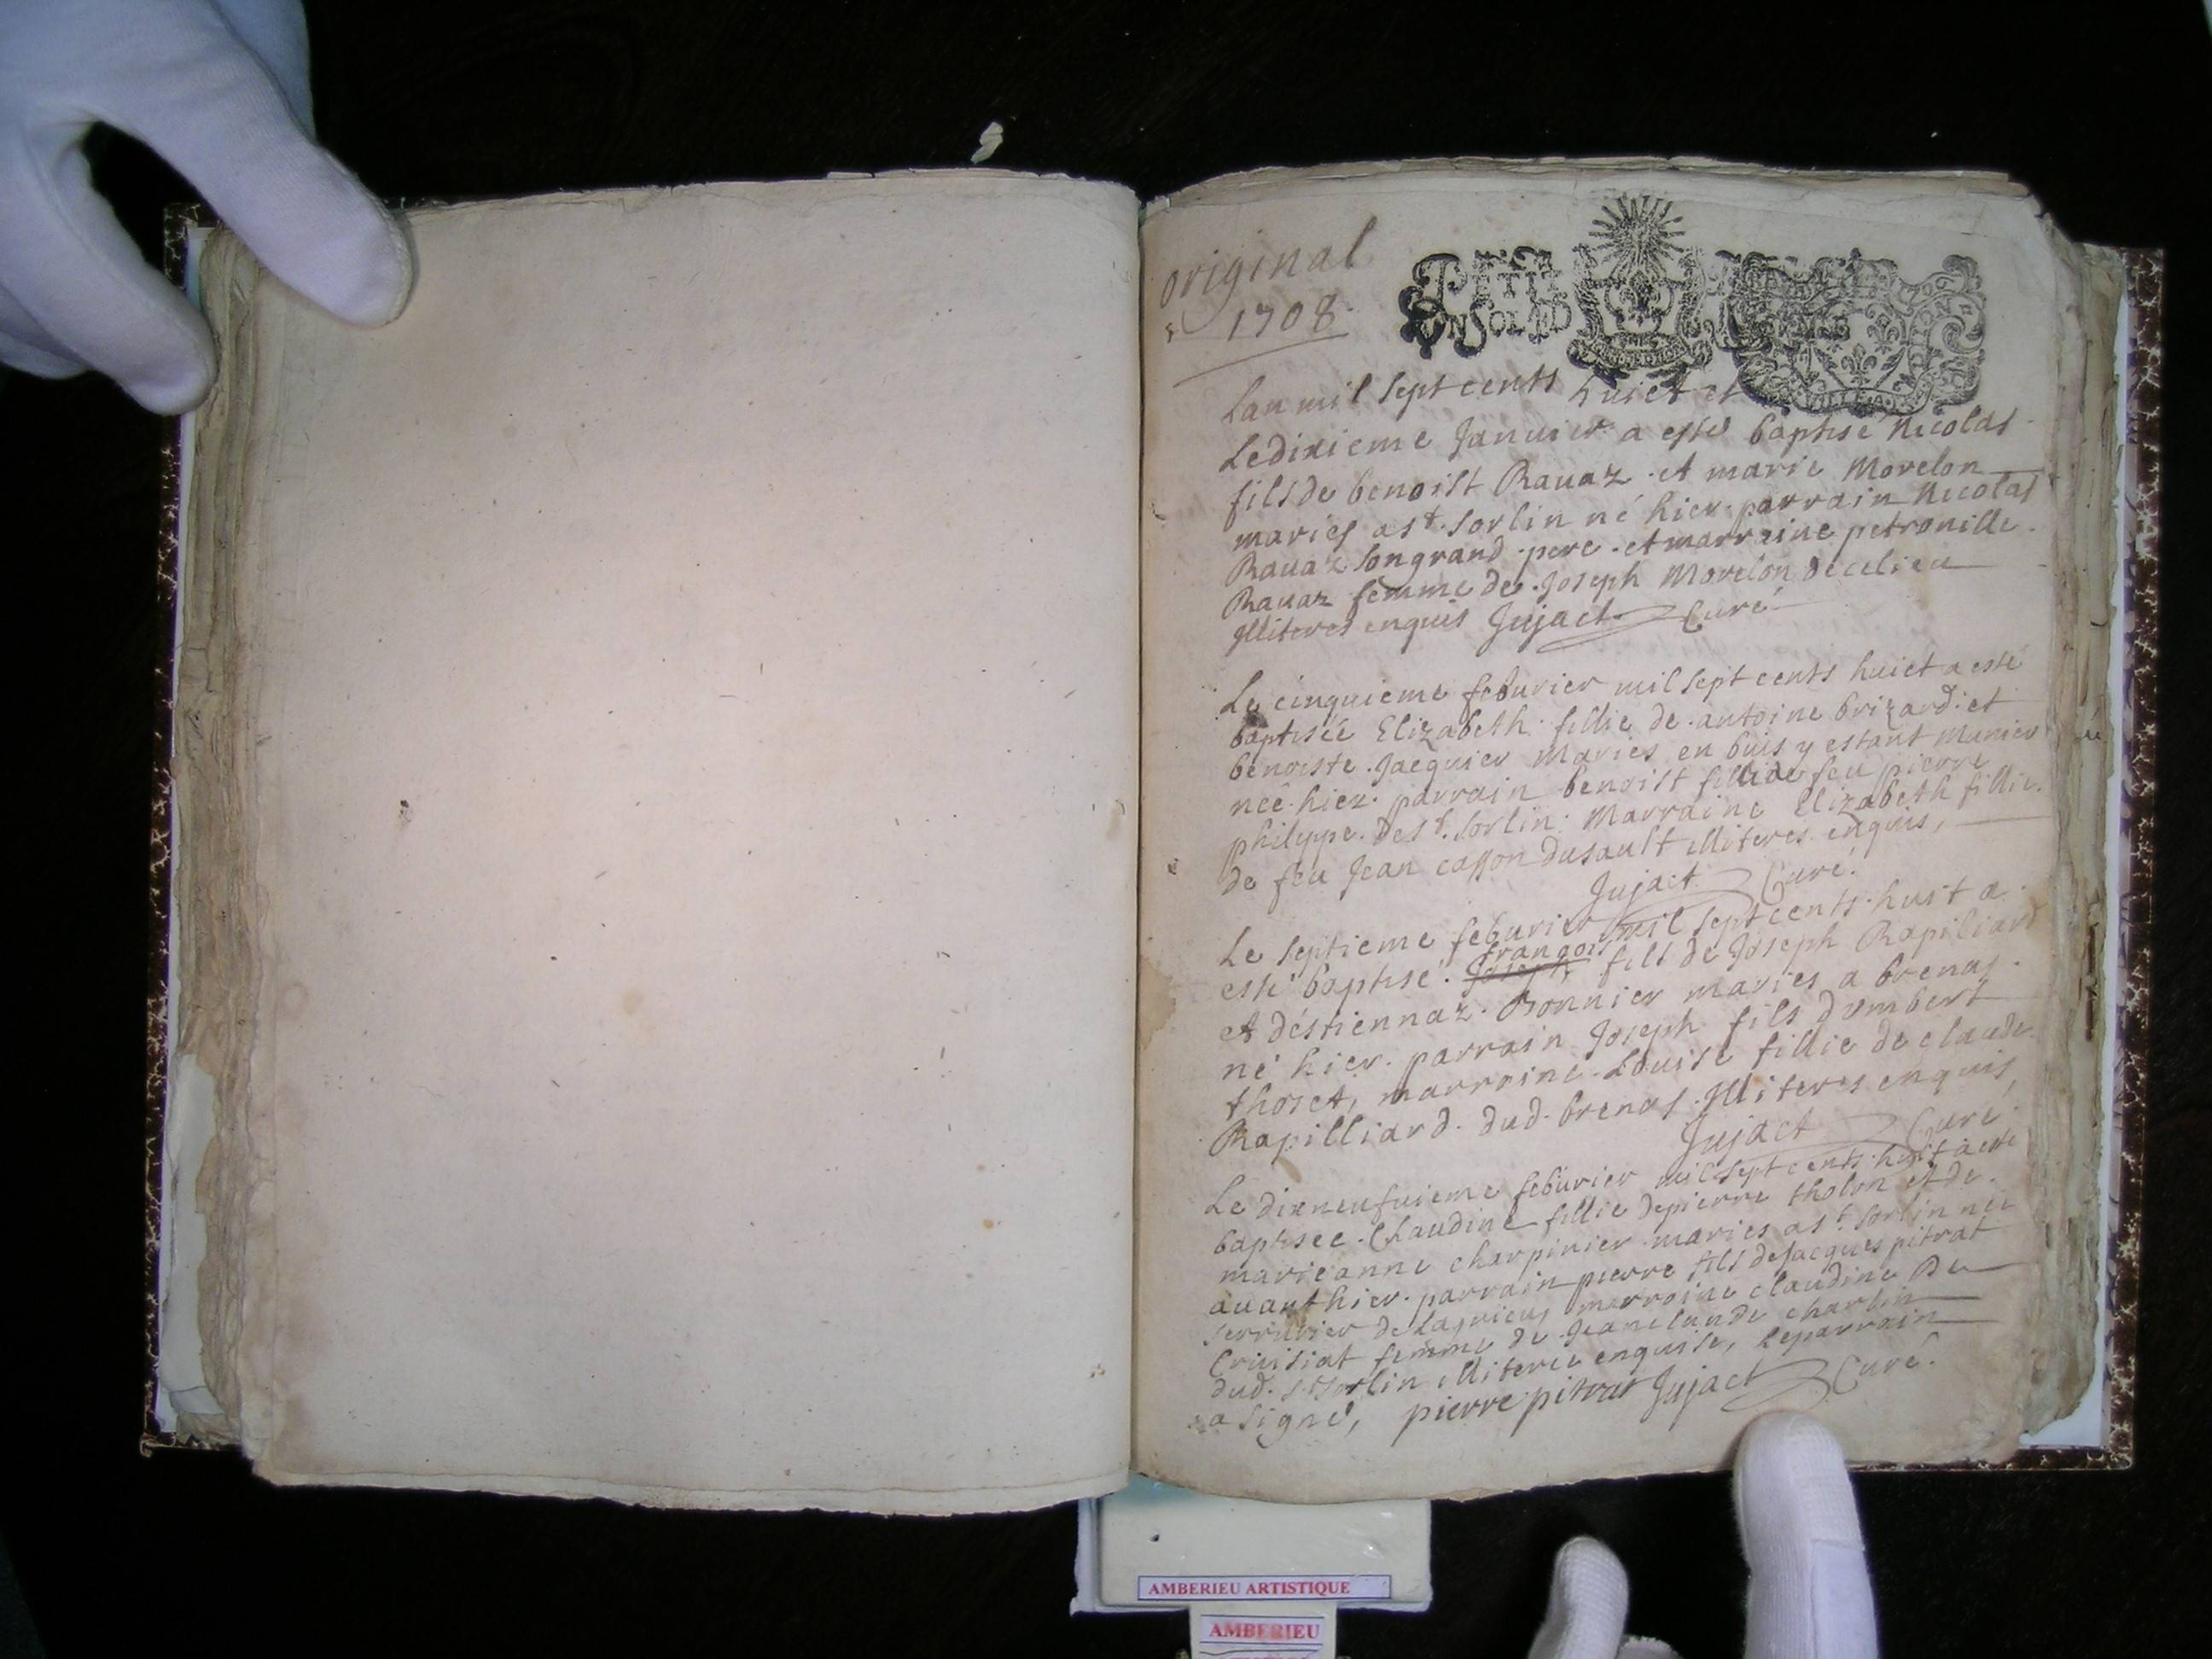 original
1708
PETIT
ON SOL
Lan mil sept cents huict et
Le dixieme Januier a esté baptisé Nicolas
fils de benoist Rauaz et marie Morelon
mariés a st. sorlin né hier. parrain Nicolas
Rauaz son grand pere. et marraine petronille
Rauaz femme de Joseph Morelon de ce lieu
Illiteres enquis Jujact Curé
Le cinquieme feburier mil sept cents huict a esté
baptisée Elizabeth fillie de antoine brizard et
benoiste Jacquier Mariés en buis y estant Munier
née hier. parrain benoist fillie de feu pierre
philippe de st. sorlin. Marraine Elizabeth fillie
de feu Jean casson dusault illiteres enquis,
Jujact Curé.
Le septieme feburier mil sept cents huit a
françois
esté baptisé. Joseph fils de Joseph Rapiliard
et déstiennaz Bonnier mariés a brenas.
né hier. parrain Joseph fils dymbert
thoset, marraine Louise fillie de claude
Rapilliard dud. brenas. Illiteres enquis,
Jujact Curé.
Le dixneufuieme feburier mil sept cents huit a esté
baptisee. Claudine fillie de pierre tholon et de
marieanne charpinier mariés a st. sorlin née
auanthier. parrain pierre fils de Jacques pitrat
serrurier de Lagnieu, marraine claudine Du
Cruisiat femme de Jeanclaude charlin
dud. st sorlin illiteree enquise, Le parrain
a signé, pierre pitrat Jujact Curé.
AMBERIEU ARTISTIQUE
AMBERIEU